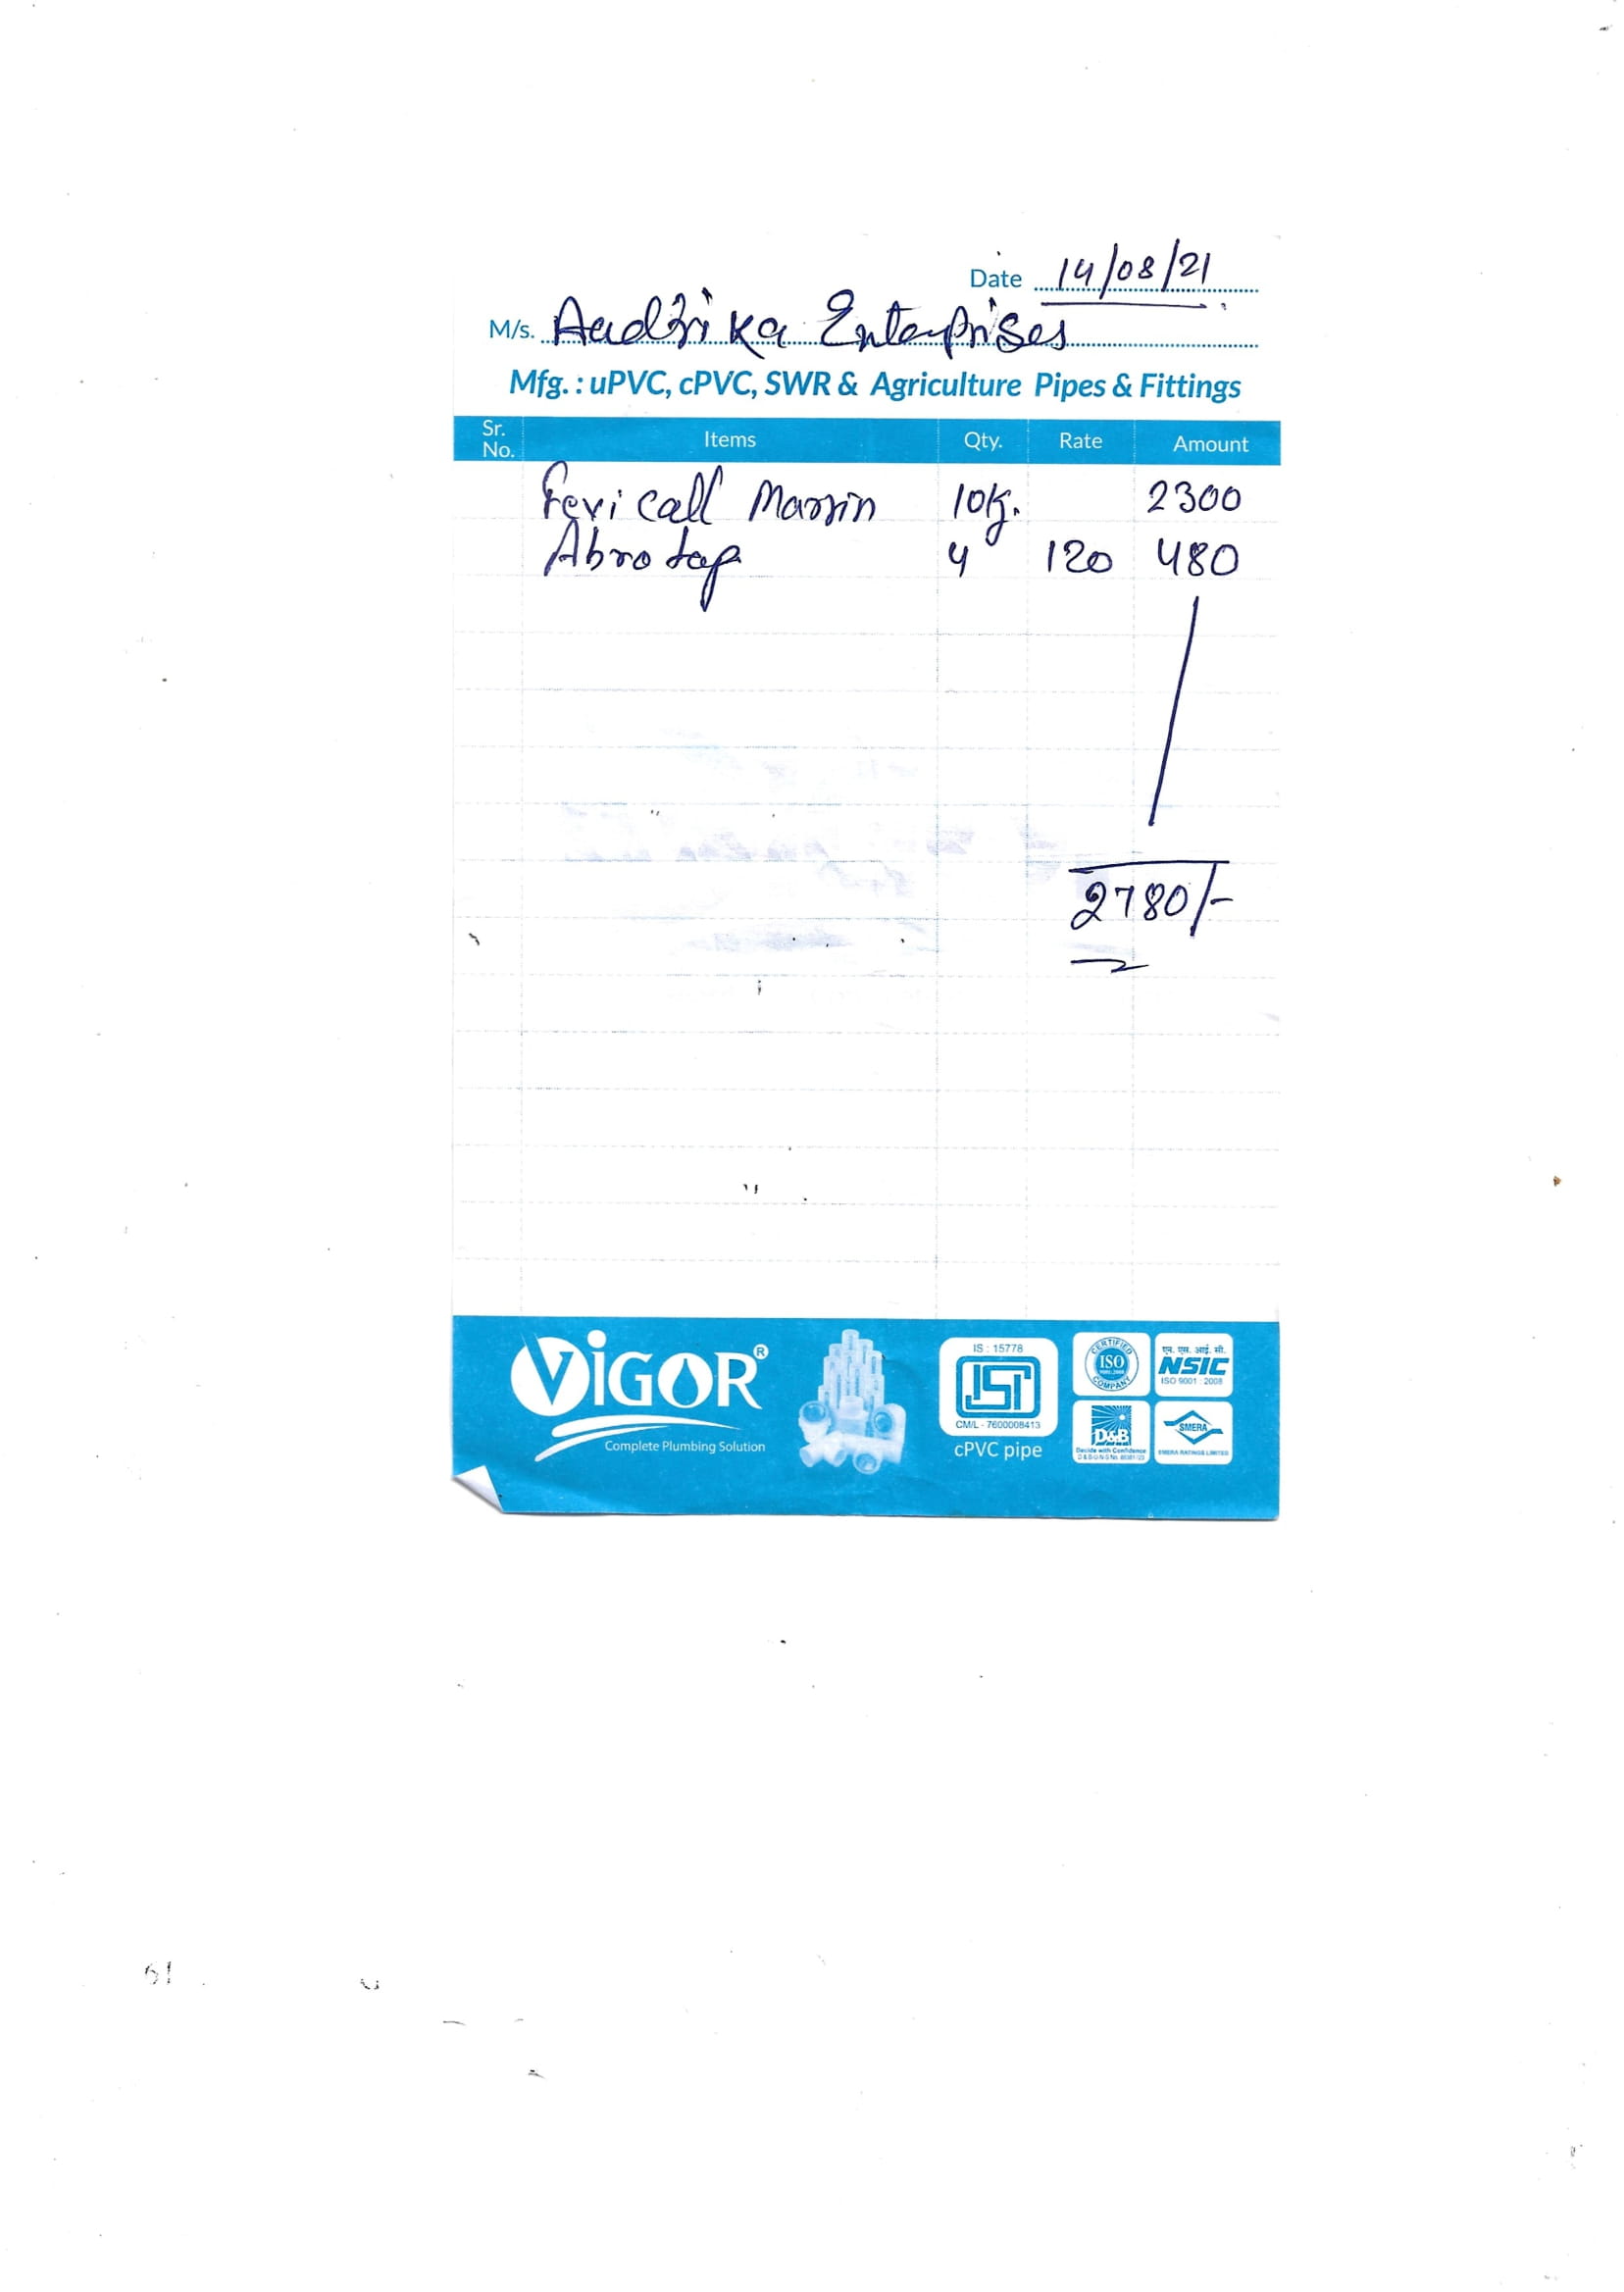 Date 14/08/21
M/s. Aadhika Enterprises
Mfg. : uPVC, cPVC, SWR & Agriculture Pipes & Fittings
Sr. No. Items Qty. Rate Amount
Fevicall Marrin 10kg. 2300
Abro tap 4 120 480
2780/-
ViGOR®
Complete Plumbing Solution
IS : 15778
ISI
CM/L - 7600008413
cPVC pipe
CERTIFIED
ISO
9001:2008
COMPANY
एन. एस. आई. सी.
NSIC
ISO 9001 : 2008
D&B
Decide with Confidence
SMERA
SMERA RATINGS LIMITED